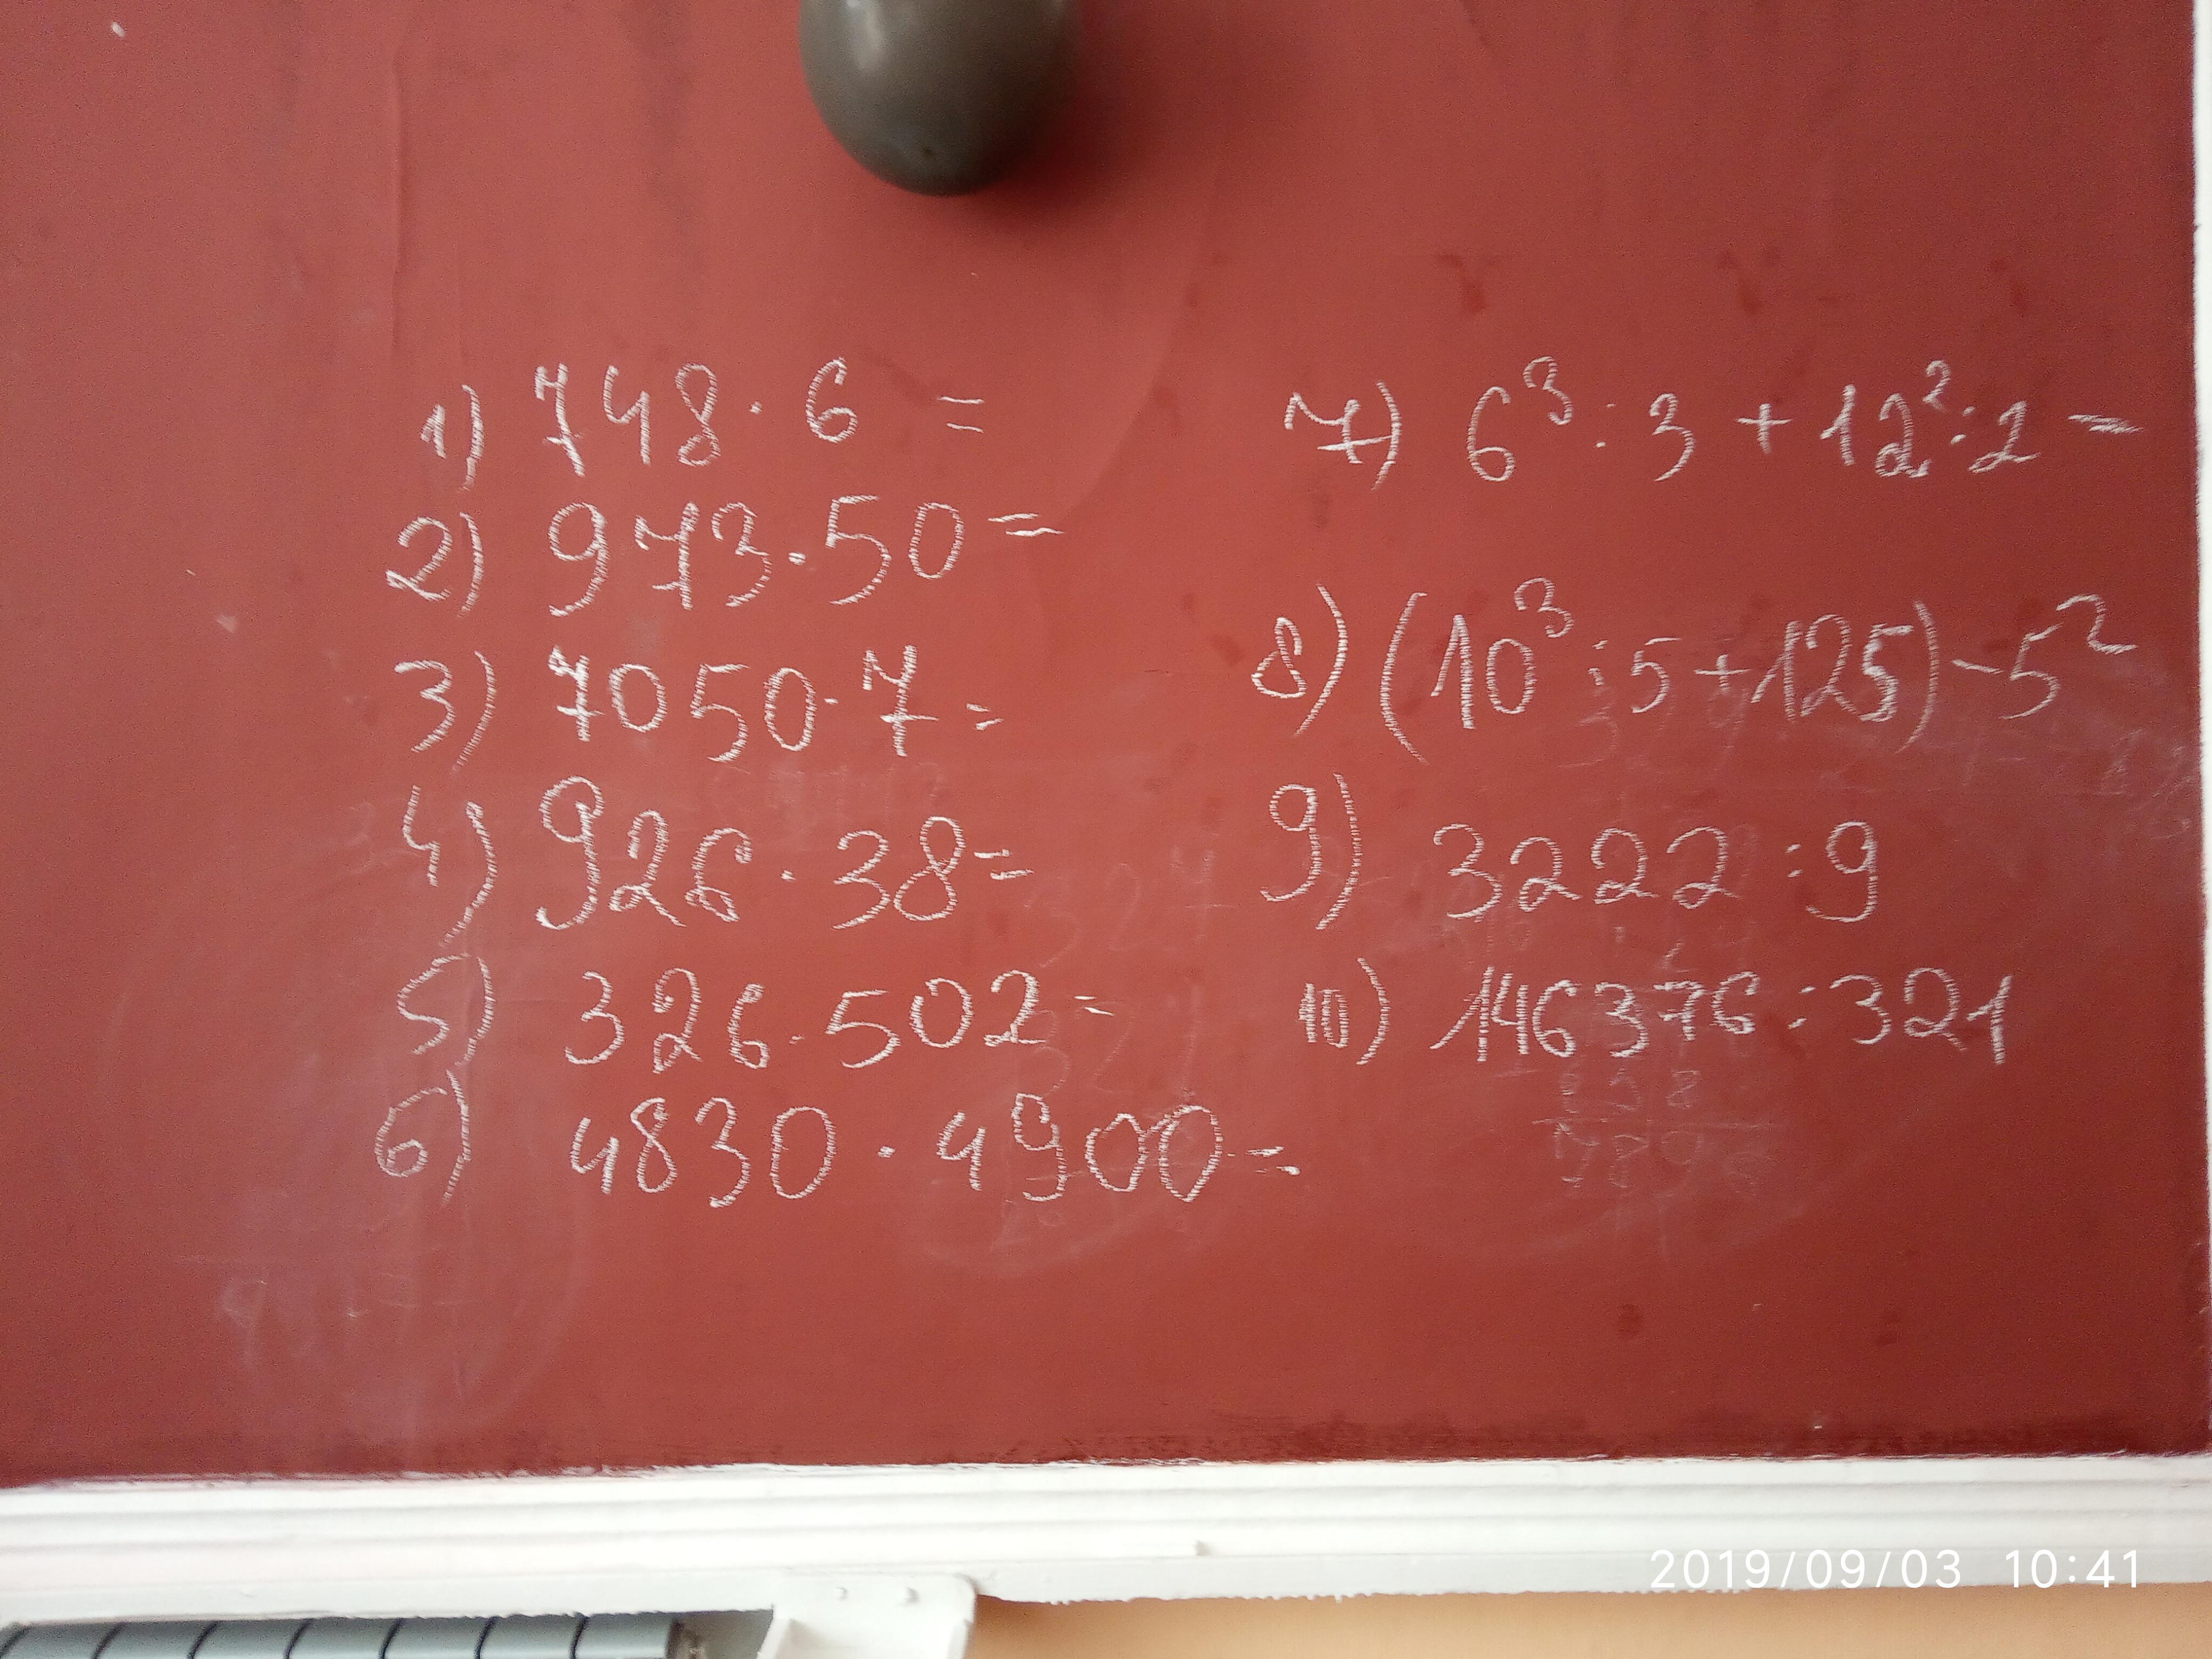 1) 748 · 6 =
2) 973 · 50 =
3) 7050 · 7 =
4) 926 · 38 =
5) 326 · 502 =
6) 4830 · 4900 =
7) 6³ : 3 + 12² : 2 =
8) (10³ : 5 + 125) - 5²
9) 3222 : 9
10) 146376 : 321
2019/09/03 10:41